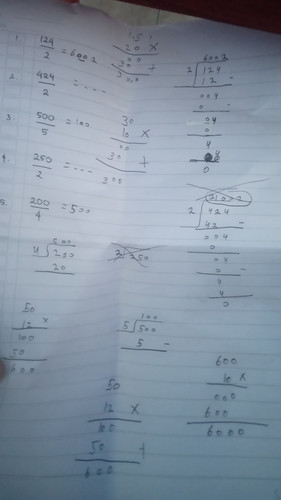 1. 124/2 = 6002
2. 424/2 = ....
3. 500/5 = 100
4. 250/2 = ...
5. 200/4 = 500
15
20 x
300 +
300
30
10 x
00
30 +
300
6002
2 124
12 -
004
0 -
04
0
4
0
2 424
42 -
004
0
04
0 -
4
4
0
500
4 200
20
50
12 x
100
50
600
100
5 500
5 -
50
12 x
100
50 +
600
600
10 x
000
600
6000